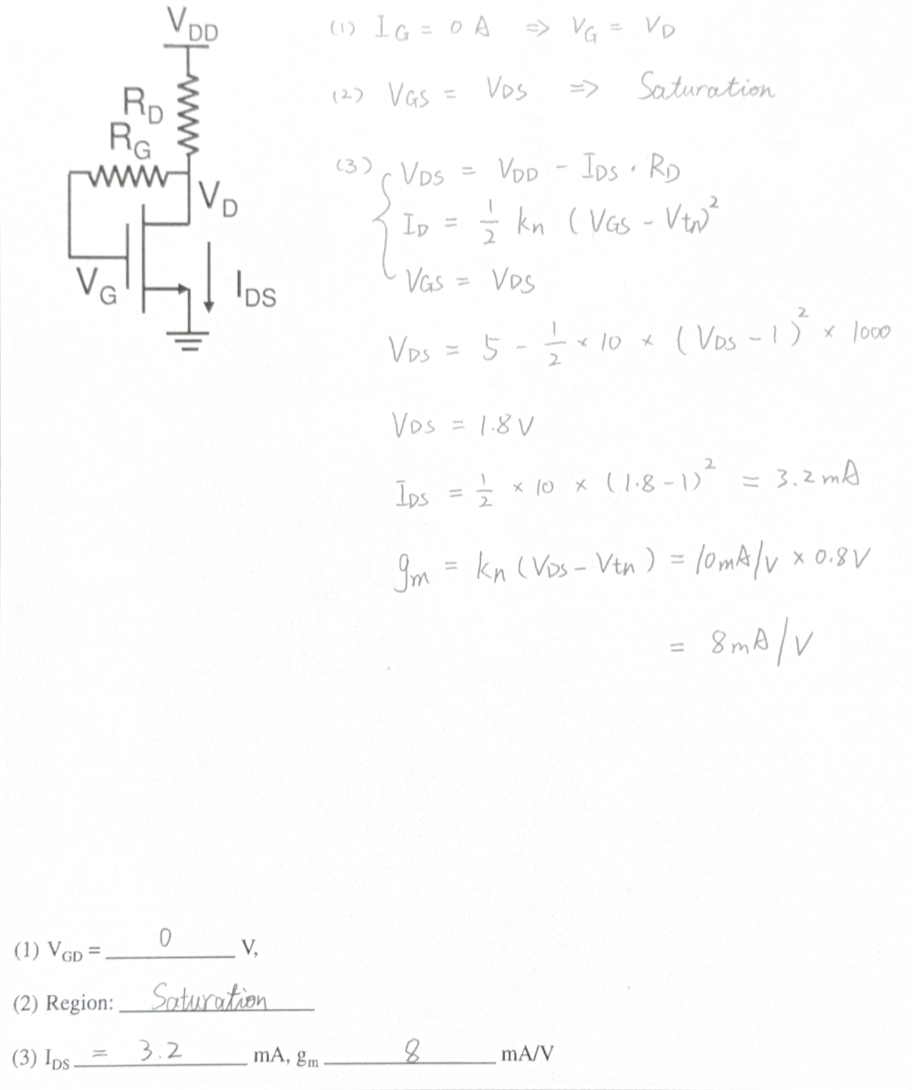 V_DD
R_D
R_G
V_D
V_G
I_DS
(1) I_G = 0 A ⇒ V_G = V_D
(2) V_GS = V_DS ⇒ Saturation
(3) { V_DS = V_DD - I_DS · R_D
I_D = 1/2 k_n (V_GS - V_tn)^2
V_GS = V_DS
V_DS = 5 - 1/2 × 10 × (V_DS - 1)^2 × 1000
V_DS = 1.8 V
I_DS = 1/2 × 10 × (1.8 - 1)^2 = 3.2 mA
g_m = k_n (V_DS - V_tn) = 10mA/V × 0.8V
= 8 mA/V
(1) V_GD = 0 V,
(2) Region: Saturation
(3) I_DS = 3.2 mA, g_m 8 mA/V